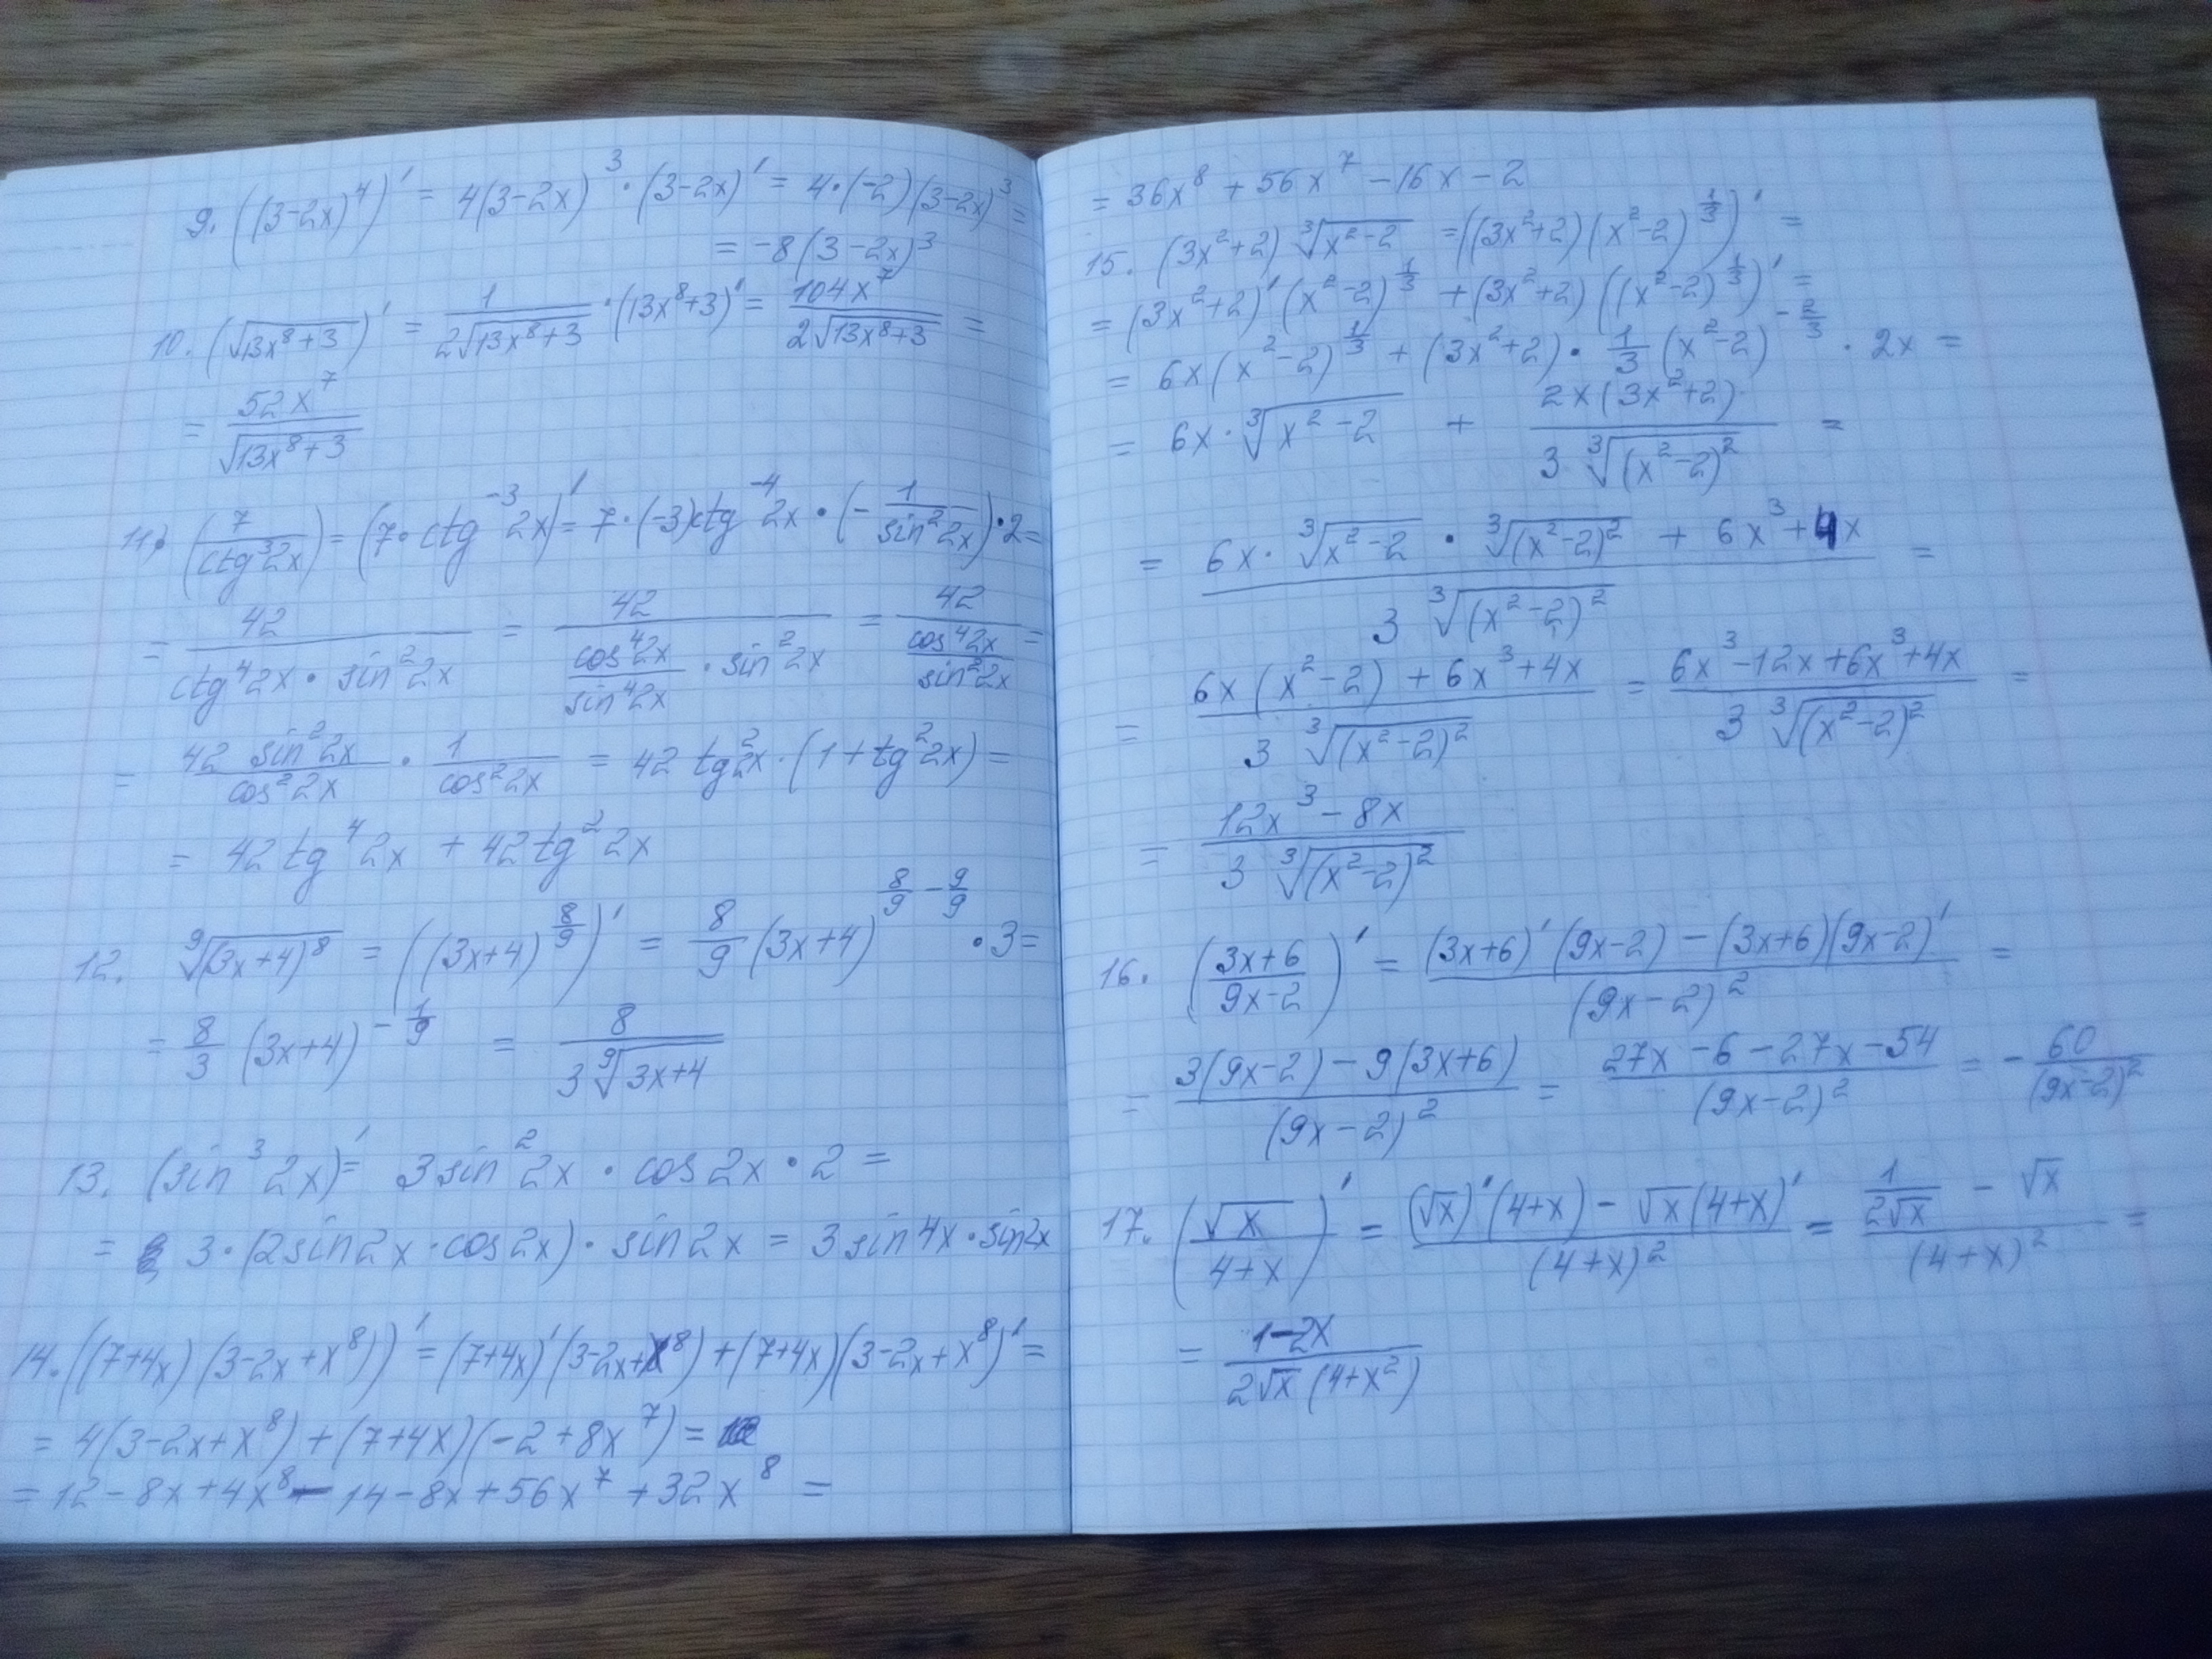 9. ((3-2x)⁴)' = 4(3-2x)³·(3-2x)' = 4·(-2)(3-2x)³ =
= -8(3-2x)³
10. (√(13x⁸+3))' = 1/(2√(13x⁸+3)) · (13x⁸+3)' = 104x⁷/(2√(13x⁸+3)) =
= 52x⁷/√(13x⁸+3)
11. (7/ctg³2x) = (7·ctg⁻³2x)' = 7·(-3)ctg⁻⁴2x·(-1/sin²2x)·2 =
= 42/(ctg⁴2x · sin²2x) = 42/((cos⁴2x/sin⁴2x) · sin²2x) = 42/(cos⁴2x/sin²2x) =
= 42 sin²2x/cos²2x · 1/cos²2x = 42 tg²2x·(1+tg²2x) =
= 42tg⁴2x + 42tg²2x
12. ⁹√(3x+4)⁸ = ((3x+4)^(8/9))' = 8/9 (3x+4)^(8/9 - 9/9) · 3 =
= 8/3 (3x+4)^(-1/9) = 8/(3 ⁹√(3x+4))
13. (sin³2x)' = 3sin²2x · cos2x · 2 =
= 3·(2sin2x·cos2x)·sin2x = 3sin4x·sin2x
14. ((7+4x)(3-2x+x⁸))' = (7+4x)'(3-2x+x⁸)+(7+4x)(3-2x+x⁸)' =
= 4(3-2x+x⁸)+(7+4x)(-2+8x⁷) =
= 12-8x+4x⁸-14-8x+56x⁷+32x⁸ =
= 36x⁸+56x⁷-16x-2
15. (3x²+2) ³√(x²-2) = ((3x²+2)(x²-2)^(1/3))' =
= (3x²+2)'(x²-2)^(1/3) + (3x²+2)((x²-2)^(1/3))' =
= 6x(x²-2)^(1/3) + (3x²+2)· 1/3 (x²-2)^(-2/3) · 2x =
= 6x· ³√(x²-2) + 2x(3x²+2)/(3 ³√(x²-2)²) =
= (6x· ³√(x²-2) · ³√(x²-2)² + 6x³+4x)/(3 ³√(x²-2)²) =
= (6x(x²-2)+6x³+4x)/(3 ³√(x²-2)²) = (6x³-12x+6x³+4x)/(3 ³√(x²-2)²) =
= (12x³-8x)/(3 ³√(x²-2)²)
16. ((3x+6)/(9x-2))' = ((3x+6)'(9x-2)-(3x+6)(9x-2)')/(9x-2)² =
= (3(9x-2)-9(3x+6))/(9x-2)² = (27x-6-27x-54)/(9x-2)² = -60/(9x-2)²
17. (√x/(4+x))' = ((√x)'(4+x)-√x(4+x)')/(4+x)² = (1/(2√x) - √x)/(4+x)² =
= (1-2x)/(2√x(4+x²))